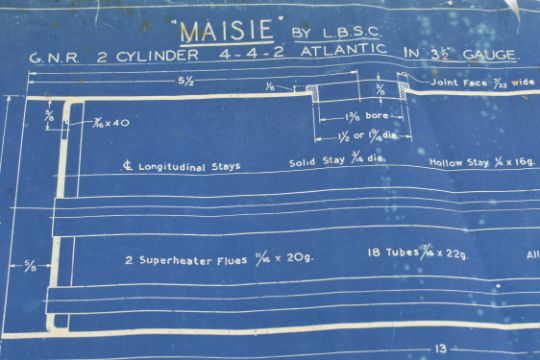 "MAISIE" BY L.B.S.C.
G.N.R. 2 CYLINDER 4-4-2 ATLANTIC IN 3½" GAUGE.
5½
Joint Face 7/32 wide
1/8
3/8
5/8
3/16 x 40
1 3/8 bore
1½ or 1 9/16 dia.
℄ Longitudinal Stays
Solid Stay 3/16 dia.
Hollow Stay ¼ x 16g.
5/8
2 Superheater Flues 11/16 x 20g.
18 Tubes 7/16 x 22g.
All
13